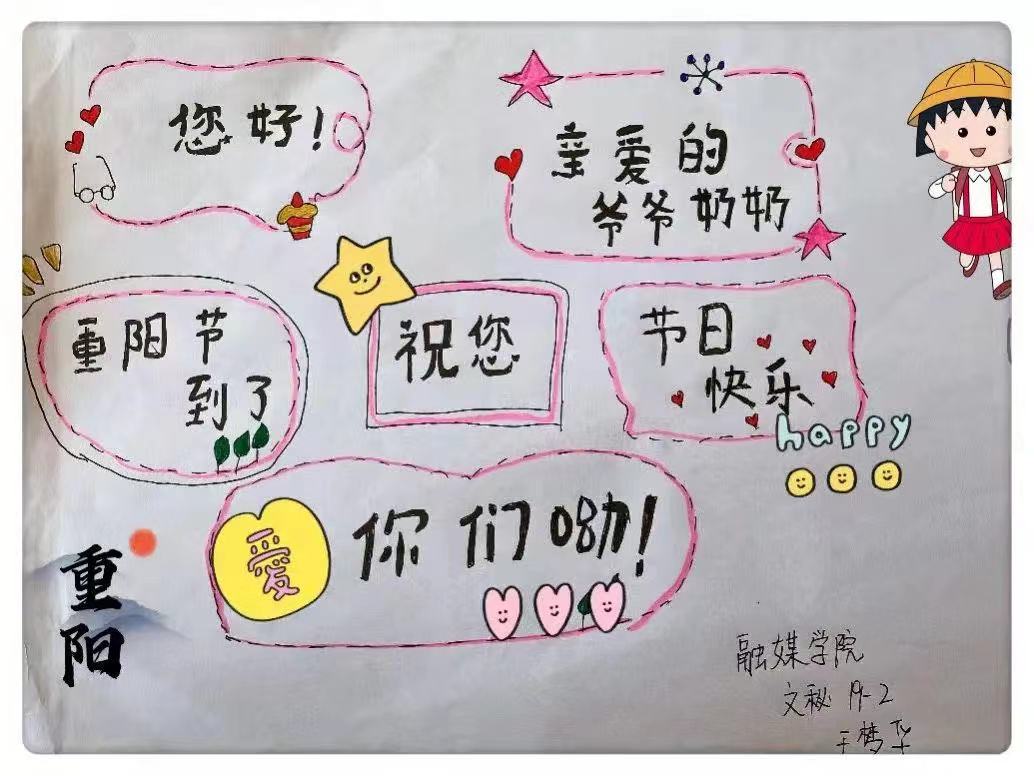 您好!
亲爱的
爷爷奶奶
重阳节
到了
祝您
节日
快乐
happy
爱你们呦!
重阳
融媒学院
文秘19-2
王梦华